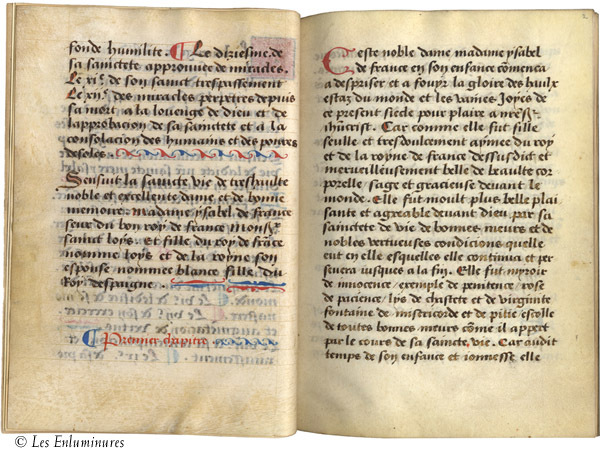 fonde humilite. Le diziesme de
sa sainctete approuvee de miracles.
Le xi.e de son sainct trespassement
Le xii.e des miracles perpetres depuis
sa mort, a la louenge de dieu et de
lapprobacion de sa sainctete et a la
consolacion des humains et des povres
desoles.
Sensuit la saincte vie de treshaulte
noble et excellente dame et de bonne
memoire madame ysabel de france
seur du bon roy de france monsr
sainct loys. Et fille du roy de frãce
nomme loys et de la royne son
espouse nommee blance fille du
Roy despaigne.
Premier chapitre
Ceste noble dame madame ysabel
de france en son enfance cõmenca
a despriser et a fouyr la gloire des haulx
estaz du monde et les vaines Joyes de
ce present siecle pour plaire a nr̃e sr
ihũcrist. Car comme elle fut fille
seulle et tresdoulcement aymee du roy
et de la royne de france dessusdict et
merveilleusement belle de beaulte cor
porelle sage et gracieuse devant le
monde. Elle fut moult plus belle plai
sante et agreable devant dieu, par sa
sainctete de vie de bonnes meurs et de
nobles vertueuses condicions quelle
eut en elle esquelles elle continua et per
severa iusques a la fin. Elle fut myroir
de innocence exemple de penitence rose
de pacience, lys de chastete et de virginite
fontaine de misericorde et de pitie escolle
de toutes bonnes meurs cõme il appert
par le cours de sa saincte vie. Car audit
temps de son enfance et ionnesse elle
© Les Enluminures